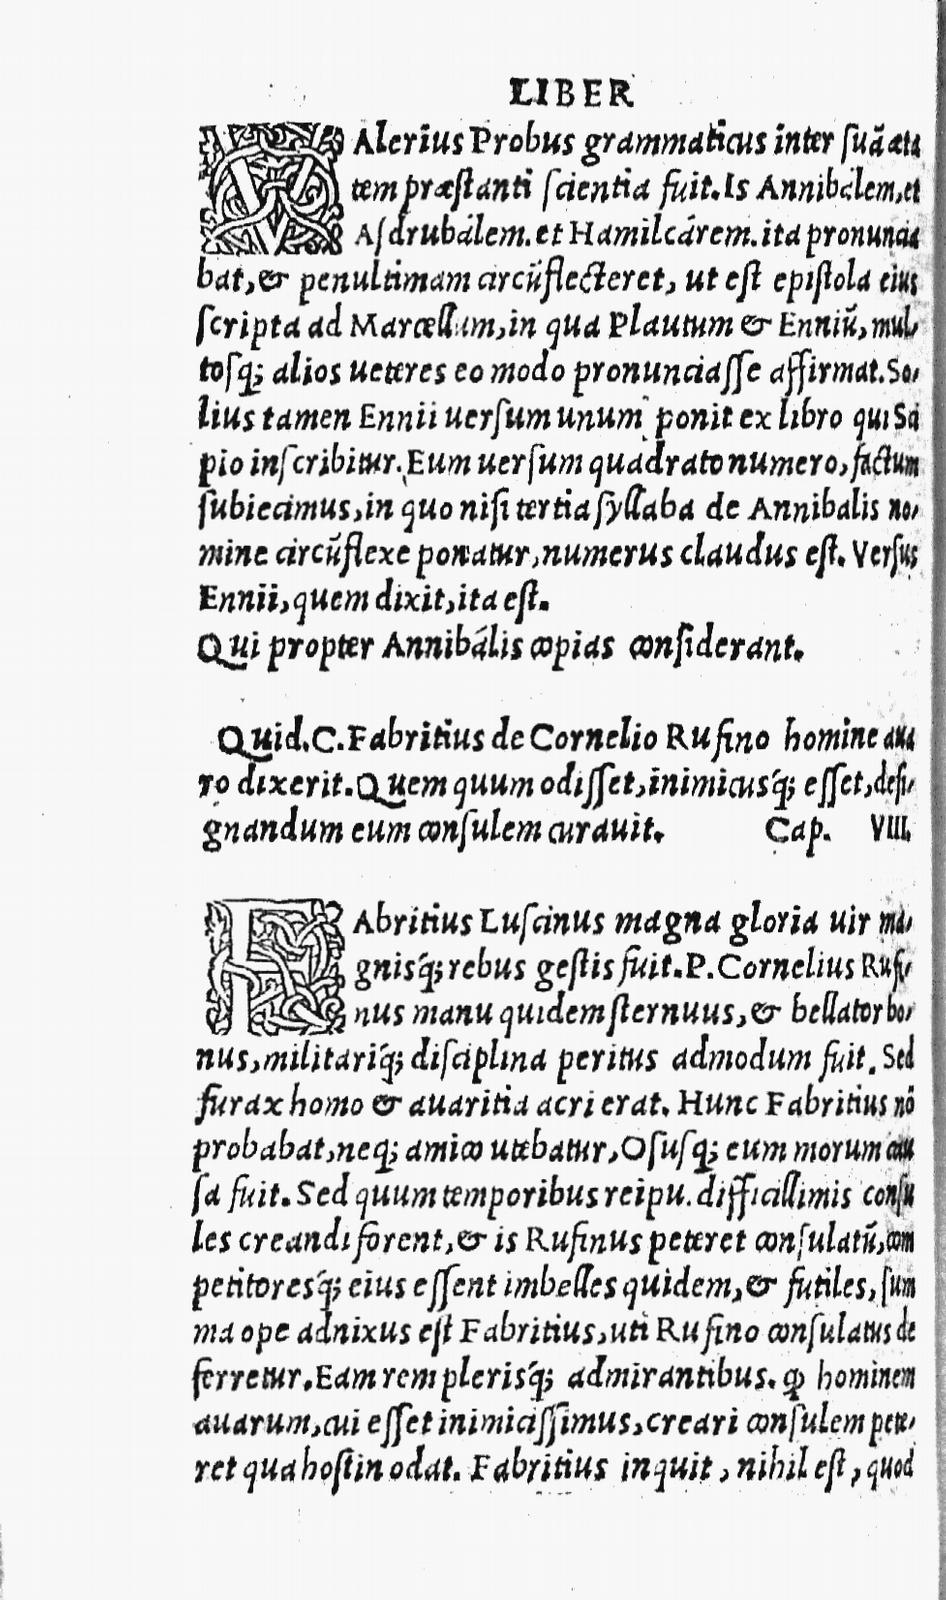 LIBER
VAlerius Probus grammaticus inter suā æta
tem præstanti scientia fuit. Is Annibálem, et
Asdrubálem. et Hamilcárem. ita pronuncia
bat, & penultimam circūflecteret, ut est epistola eius
scripta ad Marcellum, in qua Plautum & Enniū, mul-
tosq; alios ueteres eo modo pronunciasse affirmat. So-
lius tamen Ennii uersum unum ponit ex libro qui Sci
pio inscribitur. Eum uersum quadrato numero, factum
subiecimus, in quo nisi tertia syllaba de Annibalis no-
mine circūflexe ponatur, numerus claudus est. Versus
Ennii, quem dixit, ita est.
Qui propter Annibális copias considerant.
Quid. C. Fabritius de Cornelio Rufino homine aua
ro dixerit. Quem quum odisset, inimicusq́; esset, desi-
gnandum eum consulem curauit. Cap. VIII.
FAbritius Luscinus magna gloria uir ma-
gnisq́; rebus gestis fuit. P. Cornelius Rufi-
nus manu quidem sternuus, & bellator bo-
nus, militariq́; disciplina peritus admodum fuit. Sed
furax homo & auaritia acri erat. Hunc Fabritius nō
probabat, neq; amico utebatur, Osusq; eum morum cau
sa fuit. Sed quum temporibus reipu. difficillimis consu
les creandi forent, & is Rufinus peteret consulatū, com
petitoresq́; eius essent imbelles quidem, & futiles, sum
ma ope adnixus est Fabritius, uti Rufino consulatus de
ferretur. Eam rem plerisq́; admirantibus. ꝙ hominem
auarum, cui esset inimicissimus, creari consulem pete-
ret qua hostin odat. Fabritius inquit, nihil est, quod